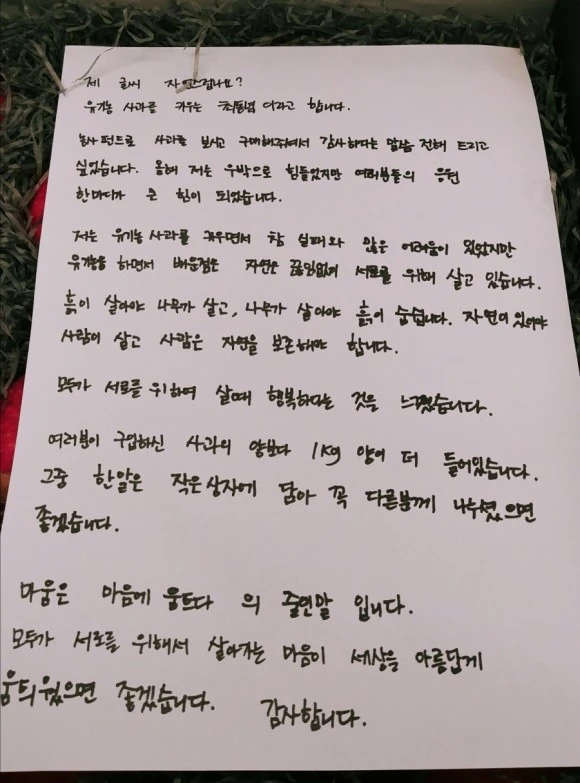 제 글씨 자연스럽나요?
유기농 사과를 키우는 최동섭 이라고 합니다.
농사펀드로 사과를 보시고 구매해주셔서 감사하다는 말씀 전해 드리고
싶었습니다. 올해 저는 우박으로 힘들었지만 여러분들의 응원
한마디가 큰 힘이 되었습니다.
저는 유기농사과를 키우면서 참 실패와 많은 어려움이 있었지만
유기농을 하면서 배운점은 자연은 끊임없이 서로를 위해 살고 있습니다.
흙이 살아야 나무가 살고, 나무가 살아야 흙이 숨쉽니다. 자연이 있어야
사람이 살고 사람은 자연을 보존해야 합니다.
모두가 서로를 위하여 살때 행복하다는 것을 느꼈습니다.
여러분이 구입하신 사과의 양보다 1kg 양이 더 들어있습니다.
그중 한알은 작은상자에 담아 꼭 다른분께 나누셨으면
좋겠습니다.
마움은 마음에 움트다 의 줄인말 입니다.
모두가 서로를 위해서 살아가는 마음이 세상을 아름답게
움틔웠으면 좋겠습니다. 감사합니다.